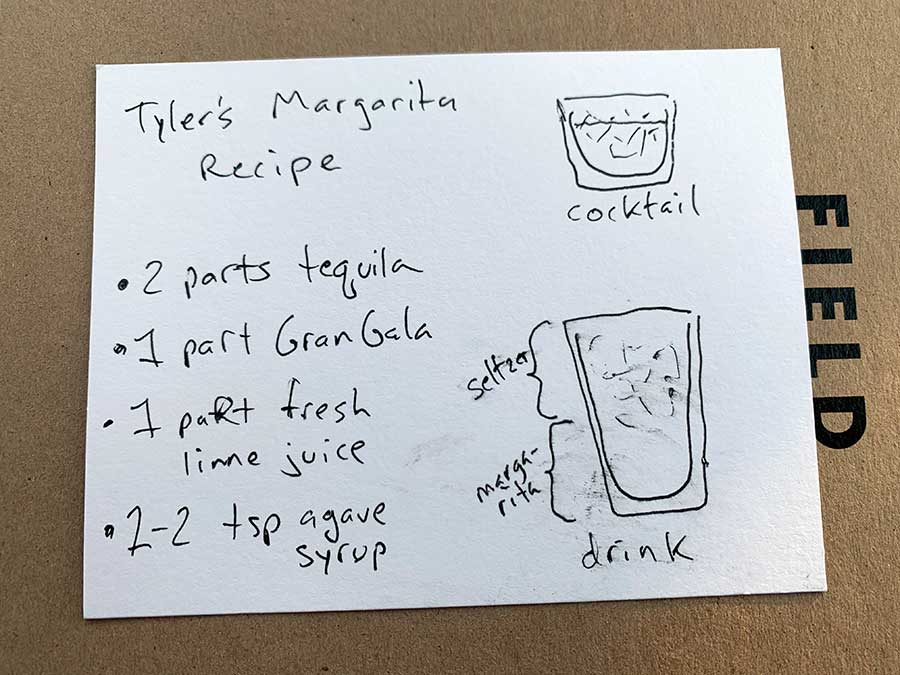 Tyler's Margarita
Recipe
• 2 parts tequila
• 1 part GranGala
• 1 part fresh
lime juice
• 1-2 tsp agave
syrup
cocktail
seltzer
marga-
rita
drink
FIELD